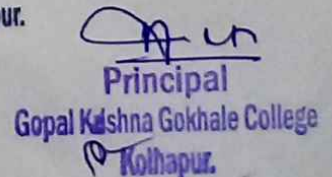 ur.
Principal
Gopal Krishna Gokhale College
Kolhapur.